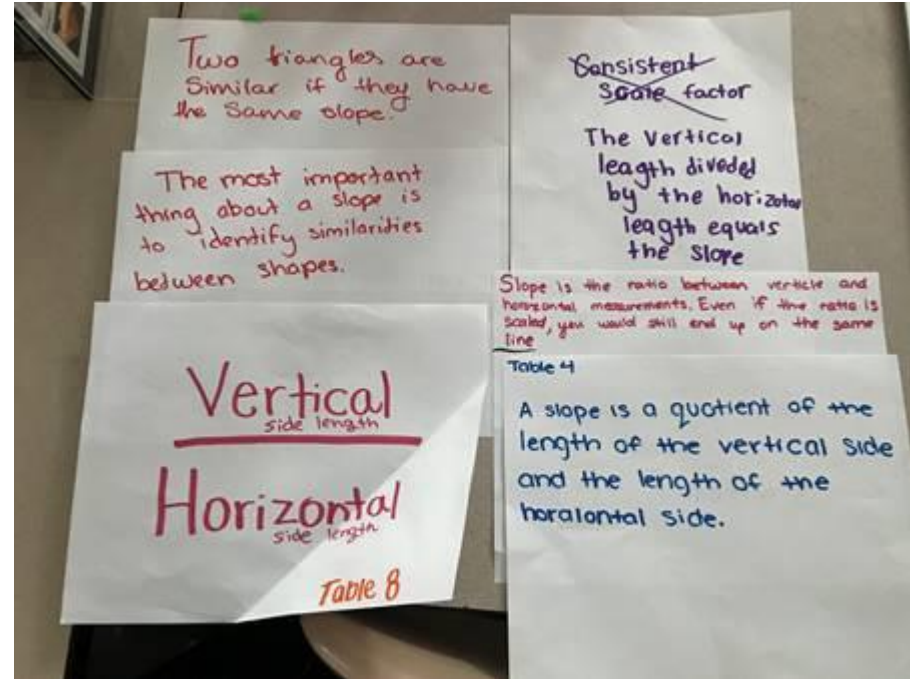 Two triangles are
Similar if they have
the Same slope.
The most important
thing about a slope is
to identify similarities
between shapes.
Vertical
side length
Horizontal
side length
Table 8
Consistent
Scale factor
The Vertical
leagth divided
by the horizotal
leagth equals
the Slope
Slope is the ratio between verticle and
horizontal measurements. Even if the ratio is
scaled, you would still end up on the same
line
Table 4
A slope is a quotient of the
length of the vertical side
and the length of the
horalontal side.